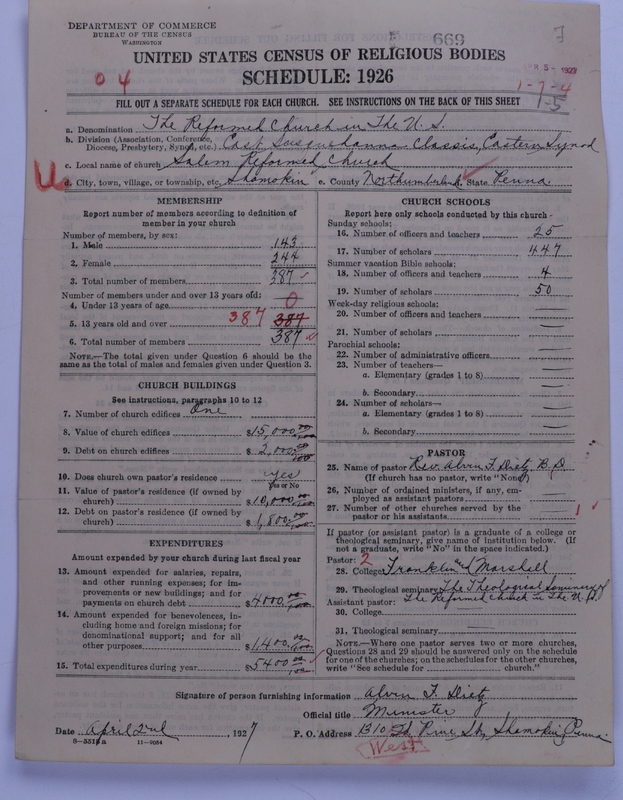 DEPARTMENT OF COMMERCE
BUREAU OF THE CENSUS
WASHINGTON
669
UNITED STATES CENSUS OF RELIGIOUS BODIES
SCHEDULE: 1926
04
1-7-4
1-5
FILL OUT A SEPARATE SCHEDULE FOR EACH CHURCH. SEE INSTRUCTIONS ON THE BACK OF THIS SHEET
a. Denomination The Reformed Church in The U.S.
b. Division (Association, Conference, Diocese, Presbytery, Synod, etc.) East Susquehanna Classis, Eastern Synod
c. Local name of church Salem Reformed Church
d. City, town, village, or township, etc. Shamokin e. County Northumberland State Penna
MEMBERSHIP
Report number of members according to definition of member in your church
Number of members, by sex:
1. Male 143
2. Female 244
3. Total number of members 387
Number of members under and over 13 years old:
4. Under 13 years of age 0
5. 13 years old and over 387 387
6. Total number of members 387
NOTE.—The total given under Question 6 should be the same as the total of males and females given under Question 3.
CHURCH BUILDINGS
See instructions, paragraphs 10 to 12
7. Number of church edifices One
8. Value of church edifices $15,000 00/100
9. Debt on church edifices $2,000 00/100
10. Does church own pastor's residence yes
Yes or No
11. Value of pastor's residence (if owned by church) $10,000 00/100
12. Debt on pastor's residence (if owned by church) $1,800 00/100
EXPENDITURES
Amount expended by your church during last fiscal year
13. Amount expended for salaries, repairs, and other running expenses; for improvements or new buildings; and for payments on church debt $4000 00/100
14. Amount expended for benevolences, including home and foreign missions; for denominational support; and for all other purposes $1,400 00/100
15. Total expenditures during year $5400 00/100
CHURCH SCHOOLS
Report here only schools conducted by this church
Sunday schools:
16. Number of officers and teachers 25
17. Number of scholars 447
Summer vacation Bible schools:
18. Number of officers and teachers 4
19. Number of scholars 50
Week-day religious schools:
20. Number of officers and teachers
21. Number of scholars
Parochial schools:
22. Number of administrative officers
23. Number of teachers—
a. Elementary (grades 1 to 8)
b. Secondary
24. Number of scholars—
a. Elementary (grades 1 to 8)
b. Secondary
PASTOR
25. Name of pastor Rev. Alvin F. Dietz, B.D.
(If church has no pastor, write "None")
26. Number of ordained ministers, if any, employed as assistant pastors
27. Number of other churches served by the pastor or his assistants 1
If pastor (or assistant pastor) is a graduate of a college or theological seminary, give name of institution below. (If not a graduate, write "No" in the space indicated.)
Pastor: 2
28. College Franklin and Marshall
29. Theological seminary The Theological Seminary of
Assistant pastor: The Reformed Church in The U.S.
30. College
31. Theological seminary
NOTE.—Where one pastor serves two or more churches, Questions 28 and 29 should be answered only on the schedule for one of the churches; on the schedules for the other churches, write "See schedule for church."
Signature of person furnishing information Alvin F. Dietz
Official title Minister
Date April 2nd, 1927 P. O. Address 1310 W. Pine St., Shamokin, Penna.
West
8-551a 11-9054